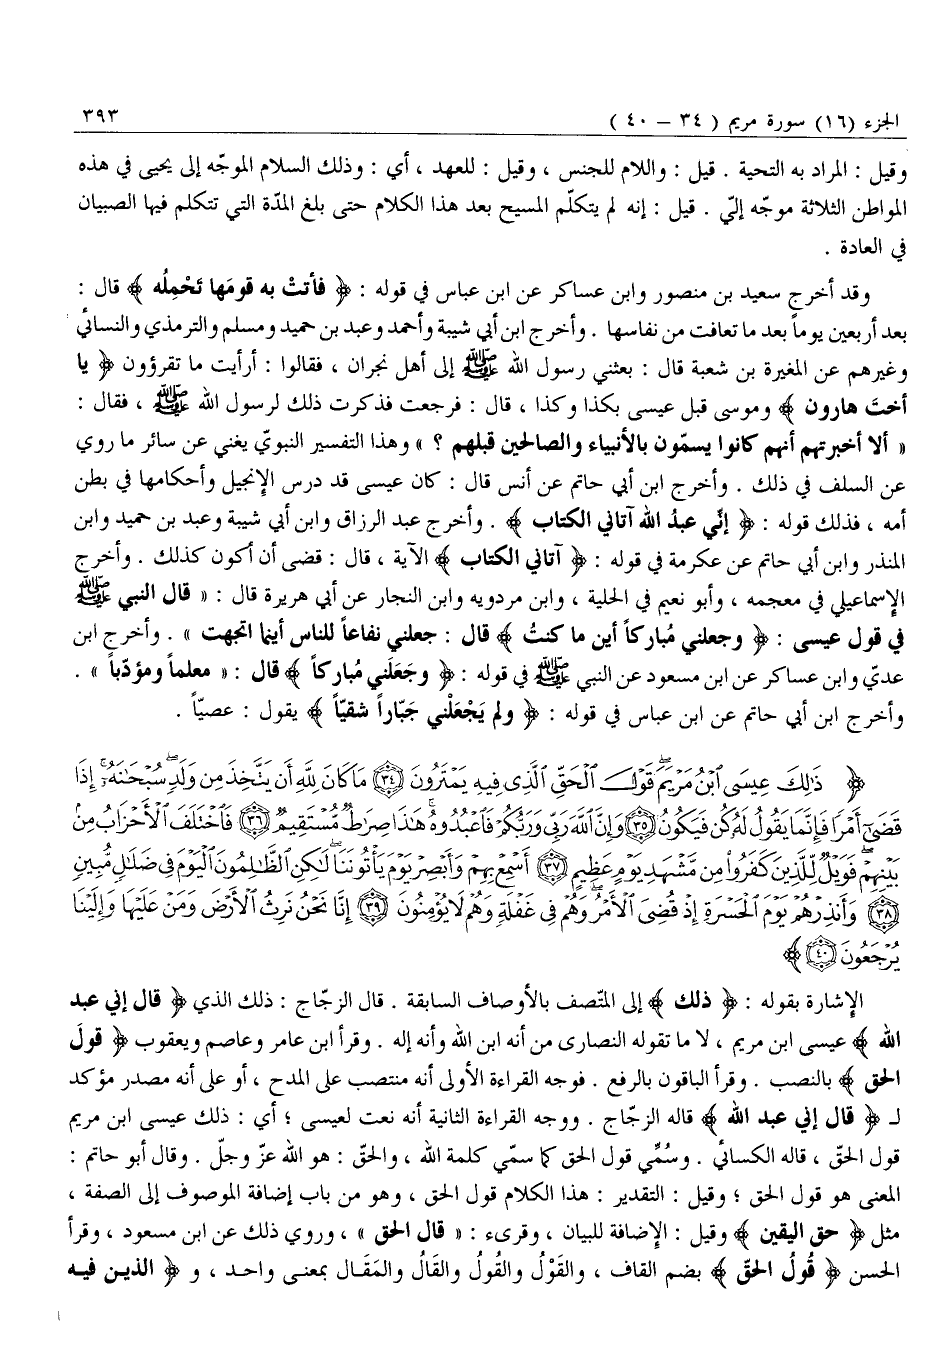 الجزء (١٦) سورة مريم ( ٣٤ – ٤٠ ) ٣٩٣
وقيل : المراد به التحية . قيل : واللام للجنس ، وقيل : للعهد ، أي : وذلك السلام الموجّه إلى يحيى في هذه
المواطن الثلاثة موجّه إليّ . قيل : إنه لم يتكلّم المسيح بعد هذا الكلام حتى بلغ المدّة التي تتكلم فيها الصبيان
في العادة .
وقد أخرج سعيد بن منصور وابن عساكر عن ابن عباس في قوله : ﴿ فأتتْ به قومَها تَحْمِلُه ﴾ قال :
بعد أربعين يوماً بعد ما تعافت من نفاسها . وأخرج ابن أبي شيبة وأحمد وعبد بن حميد ومسلم والترمذي والنسائي
وغيرهم عن المغيرة بن شعبة قال : بعثني رسول الله ﷺ إلى أهل نجران ، فقالوا : أرأيت ما تقرؤون ﴿ يا
أختَ هارون ﴾ وموسى قبل عيسى بكذا وكذا ، قال : فرجعت فذكرت ذلك لرسول الله ﷺ ، فقال :
« ألا أخبرتهم أنهم كانوا يسمّون بالأنبياء والصالحين قبلهم ؟ » وهذا التفسير النبويّ يغني عن سائر ما روي
عن السلف في ذلك . وأخرج ابن أبي حاتم عن أنس قال : كان عيسى قد درس الإنجيل وأحكامها في بطن
أمه ، فذلك قوله : ﴿ إنّي عبدُ الله آتاني الكتاب ﴾ . وأخرج عبد الرزاق وابن أبي شيبة وعبد بن حميد وابن
المنذر وابن أبي حاتم عن عكرمة في قوله : ﴿ آتاني الكتاب ﴾ الآية ، قال : قضى أن أكون كذلك . وأخرج
الإسماعيلي في معجمه ، وأبو نعيم في الحلية ، وابن مردويه وابن النجار عن أبي هريرة قال : « قال النبي ﷺ
في قول عيسى : ﴿ وجعلني مُباركاً أين ما كنتُ ﴾ قال : جعلني نفاعاً للناس أينما اتجهت » . وأخرج ابن
عديّ وابن عساكر عن ابن مسعود عن النبي ﷺ في قوله : ﴿ وجَعَلَني مُباركاً ﴾ قال : « معلماً ومؤدّباً » .
وأخرج ابن أبي حاتم عن ابن عباس في قوله : ﴿ ولم يَجْعَلْني جَبّاراً شقيّاً ﴾ يقول : عصيّاً .
﴿ ذَٰلِكَ عِيسَى ٱبْنُ مَرْيَمَ ۚ قَوْلَ ٱلْحَقِّ ٱلَّذِى فِيهِ يَمْتَرُونَ ۝٣٤ مَا كَانَ لِلَّهِ أَن يَتَّخِذَ مِن وَلَدٍ ۖ سُبْحَٰنَهُۥٓ ۚ إِذَا
قَضَىٰٓ أَمْرًا فَإِنَّمَا يَقُولُ لَهُۥ كُن فَيَكُونُ ۝٣٥ وَإِنَّ ٱللَّهَ رَبِّى وَرَبُّكُمْ فَٱعْبُدُوهُ ۚ هَٰذَا صِرَٰطٌ مُّسْتَقِيمٌ ۝٣٦ فَٱخْتَلَفَ ٱلْأَحْزَابُ مِنۢ
بَيْنِهِمْ ۖ فَوَيْلٌ لِّلَّذِينَ كَفَرُوا۟ مِن مَّشْهَدِ يَوْمٍ عَظِيمٍ ۝٣٧ أَسْمِعْ بِهِمْ وَأَبْصِرْ يَوْمَ يَأْتُونَنَا ۖ لَٰكِنِ ٱلظَّٰلِمُونَ ٱلْيَوْمَ فِى ضَلَٰلٍ مُّبِينٍ
۝٣٨ وَأَنذِرْهُمْ يَوْمَ ٱلْحَسْرَةِ إِذْ قُضِىَ ٱلْأَمْرُ وَهُمْ فِى غَفْلَةٍ وَهُمْ لَا يُؤْمِنُونَ ۝٣٩ إِنَّا نَحْنُ نَرِثُ ٱلْأَرْضَ وَمَنْ عَلَيْهَا وَإِلَيْنَا
يُرْجَعُونَ ۝٤٠ ﴾
الإشارة بقوله : ﴿ ذلك ﴾ إلى المتّصف بالأوصاف السابقة . قال الزجّاج : ذلك الذي ﴿ قال إني عبد
الله ﴾ عيسى ابن مريم ، لا ما تقوله النصارى من أنه ابن الله وأنه إله . وقرأ ابن عامر وعاصم ويعقوب ﴿ قولَ
الحق ﴾ بالنصب . وقرأ الباقون بالرفع . فوجه القراءة الأولى أنه منتصب على المدح ، أو على أنه مصدر مؤكد
لـ ﴿ قال إني عبد الله ﴾ قاله الزجّاج . ووجه القراءة الثانية أنه نعت لعيسى ؛ أي : ذلك عيسى ابن مريم
قول الحقّ ، قاله الكسائي . وسُمّي قول الحق كما سمّي كلمة الله ، والحقّ : هو الله عزّ وجلّ . وقال أبو حاتم :
المعنى هو قول الحق ؛ وقيل : التقدير : هذا الكلام قول الحق ، وهو من باب إضافة الموصوف إلى الصفة ،
مثل ﴿ حق اليقين ﴾ وقيل : الإضافة للبيان ، وقرىء : « قال الحق » ، وروي ذلك عن ابن مسعود ، وقرأ
الحسن ﴿ قُولُ الحقّ ﴾ بضم القاف ، والقَوْلُ والقُولُ والقَالُ والمَقَال بمعنى واحد ، و ﴿ الذين فيه